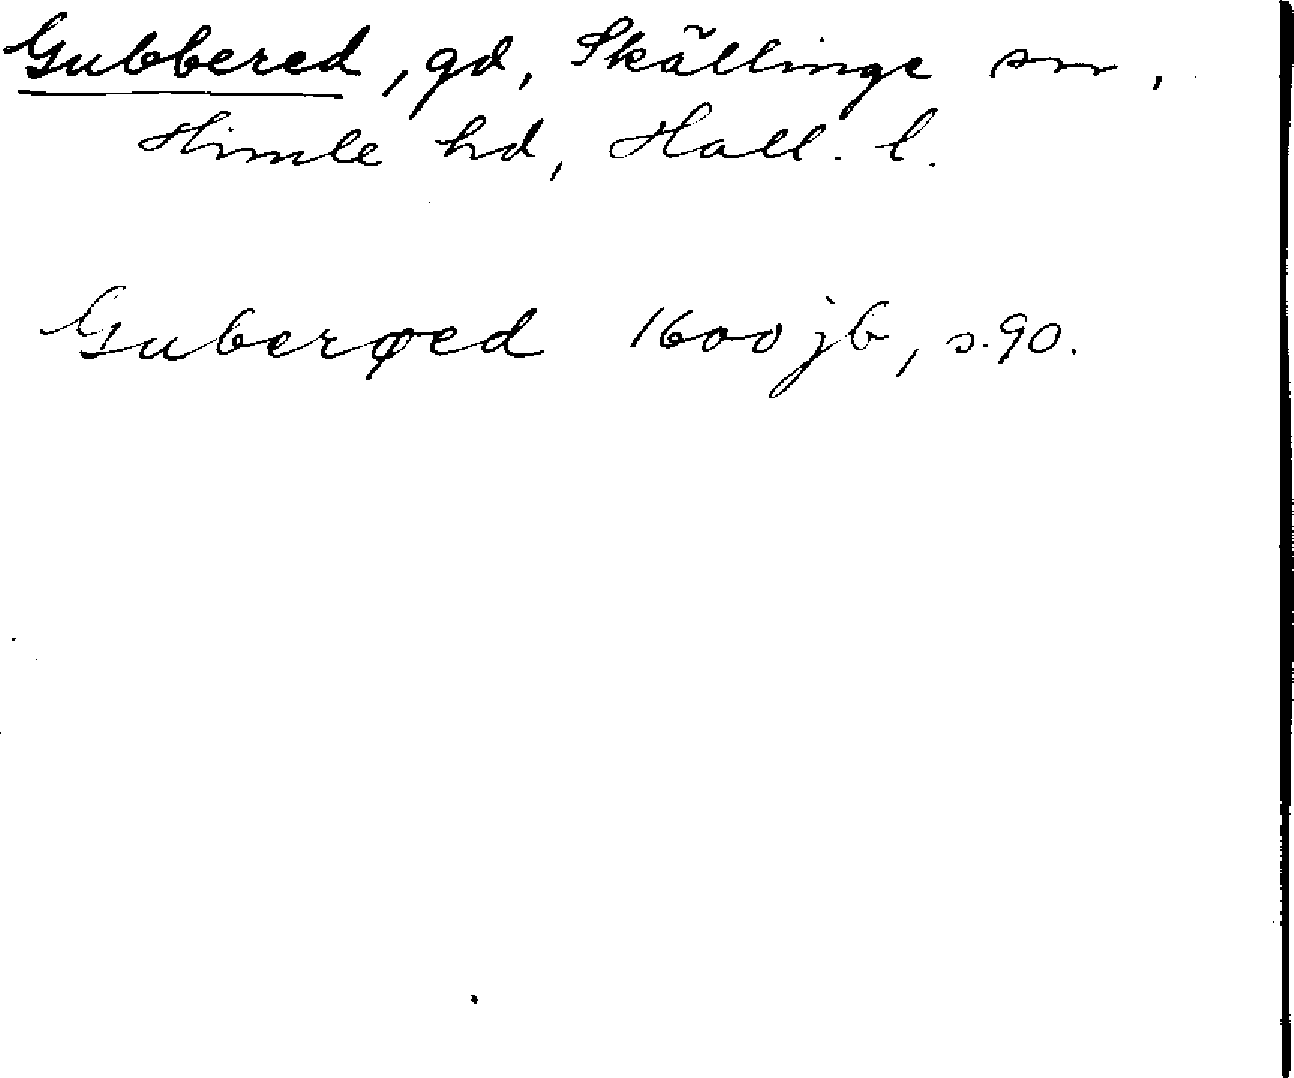 Gubbered, gd, Skällinge sn,
Himle hd, Hall. l.
Guberøed 1600 jb, s. 90.